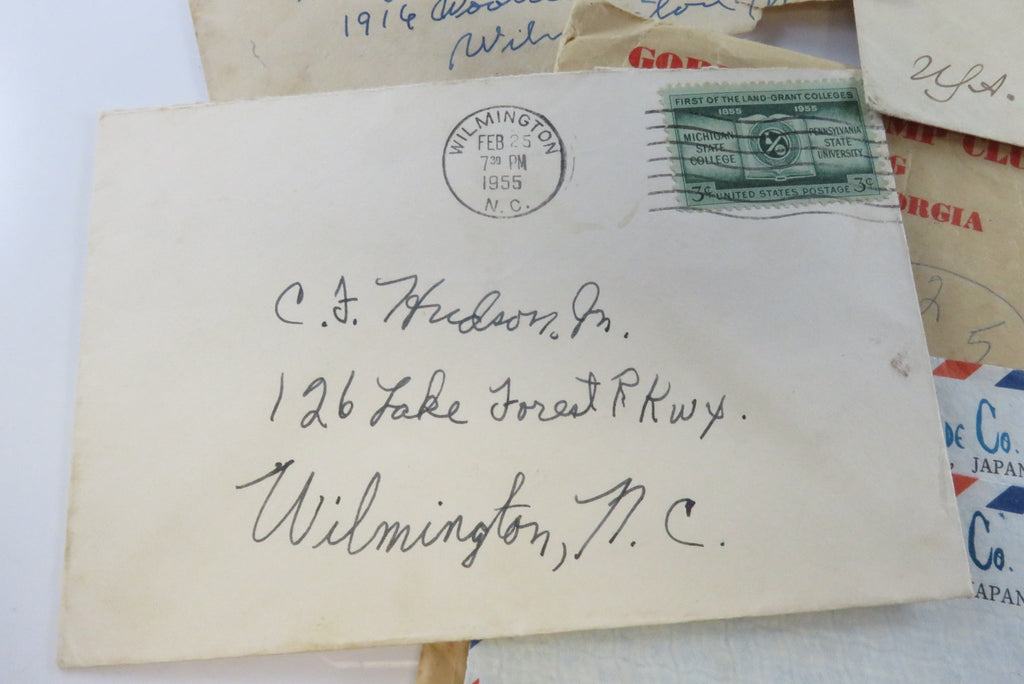 1916
Wilm
GOR
U.S.A.
WILMINGTON
FEB 25
7 30 PM
1955
N. C.
FIRST OF THE LAND-GRANT COLLEGES
1855 1955
MICHIGAN STATE COLLEGE
PENNSYLVANIA STATE UNIVERSITY
3¢ UNITED STATES POSTAGE 3¢
MP CLU
G
ORGIA
C. F. Hudson, Jr.
126 Lake Forest PKwy.
Wilmington, N. C.
2
5
DE Co.
, JAPAN
Co.
JAPAN